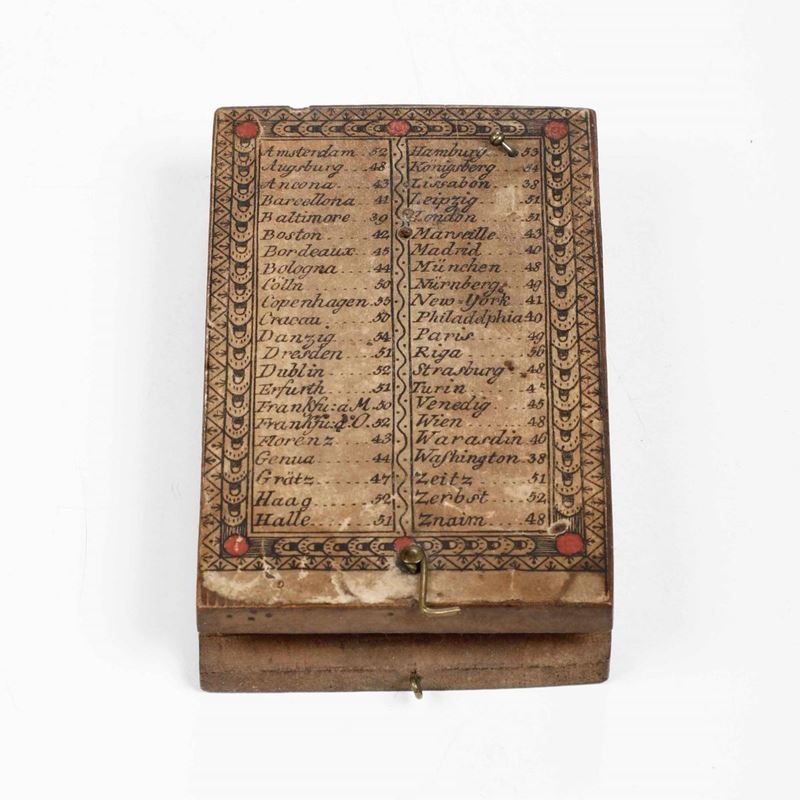 Amsterdam .. 52
Augsburg ... 48
Ancona ..... 43
Barcellona .. 41
Baltimore .. 39
Boston ..... 42
Bordeaux ... 45
Bologna .... 44
Cölln ...... 50
Copenhagen . 55
Cracau ..... 50
Danzig ..... 54
Dresden .... 51
Dublin ..... 52
Erfurth .... 51
Frankfu: a M. 50
Frankfu: a. O. 52
Florenz .... 43
Genua ...... 44
Grätz ...... 47
Haag ....... 52
Halle ...... 51
Hamburg .... 53
Königsberg .. 54
Lissabon ... 38
Leipzig .... 51
London ..... 51
Marseille .. 43
Madrid ..... 40
München .... 48
Nürnberg ... 49
New-York ... 41
Philaddphia 40
Paris ...... 49
Riga ....... 56
Strasburg .. 48
Turin ......
Venedig .... 45
Wien ....... 48
Warasdin ... 46
Waſhington . 38
Zeitz ...... 51
Zerbst ..... 52
Znaim ...... 48